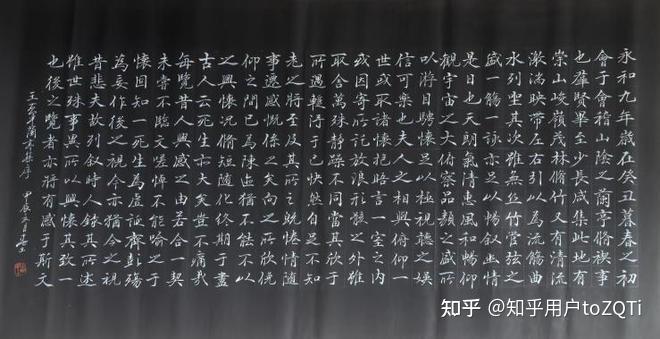 永和九年歲在癸丑暮春之初
會于會稽山陰之蘭亭脩禊事
也羣賢畢至少長咸集此地有
崇山峻嶺茂林脩竹又有清流
激湍映帶左右引以為流觴曲
水列坐其次雖無絲竹管弦之
盛一觴一詠亦足以暢敘幽情
是日也天朗氣清惠風和暢仰
觀宇宙之大俯察品類之盛所
以遊目騁懷足以極視聽之娛
信可樂也夫人之相與俯仰一
世或取諸懷抱晤言一室之內
或因寄所託放浪形骸之外雖
取舍萬殊靜躁不同當其欣於
所遇輒得于己快然自足不知
老之將至及其所之既惓情隨
事遷感慨係之矣向之所欣俛
仰之間已為陳迹猶不能不以
之興懷況脩短隨化終期于盡
古人云死生亦大矣豈不痛哉
每覽昔人興感之由若合一契
未嘗不臨文嗟悼不能喻之于
懷固知一死生為虛誕齊彭殤
為妄作後之視今亦猶今之視
昔悲夫故列敘時人錄其所述
雖世殊事異所以興懷其致一
也後之覽者亦將有感于斯文
王羲之蘭亭集序 甲辰 月
知乎 @知乎用户toZQTi